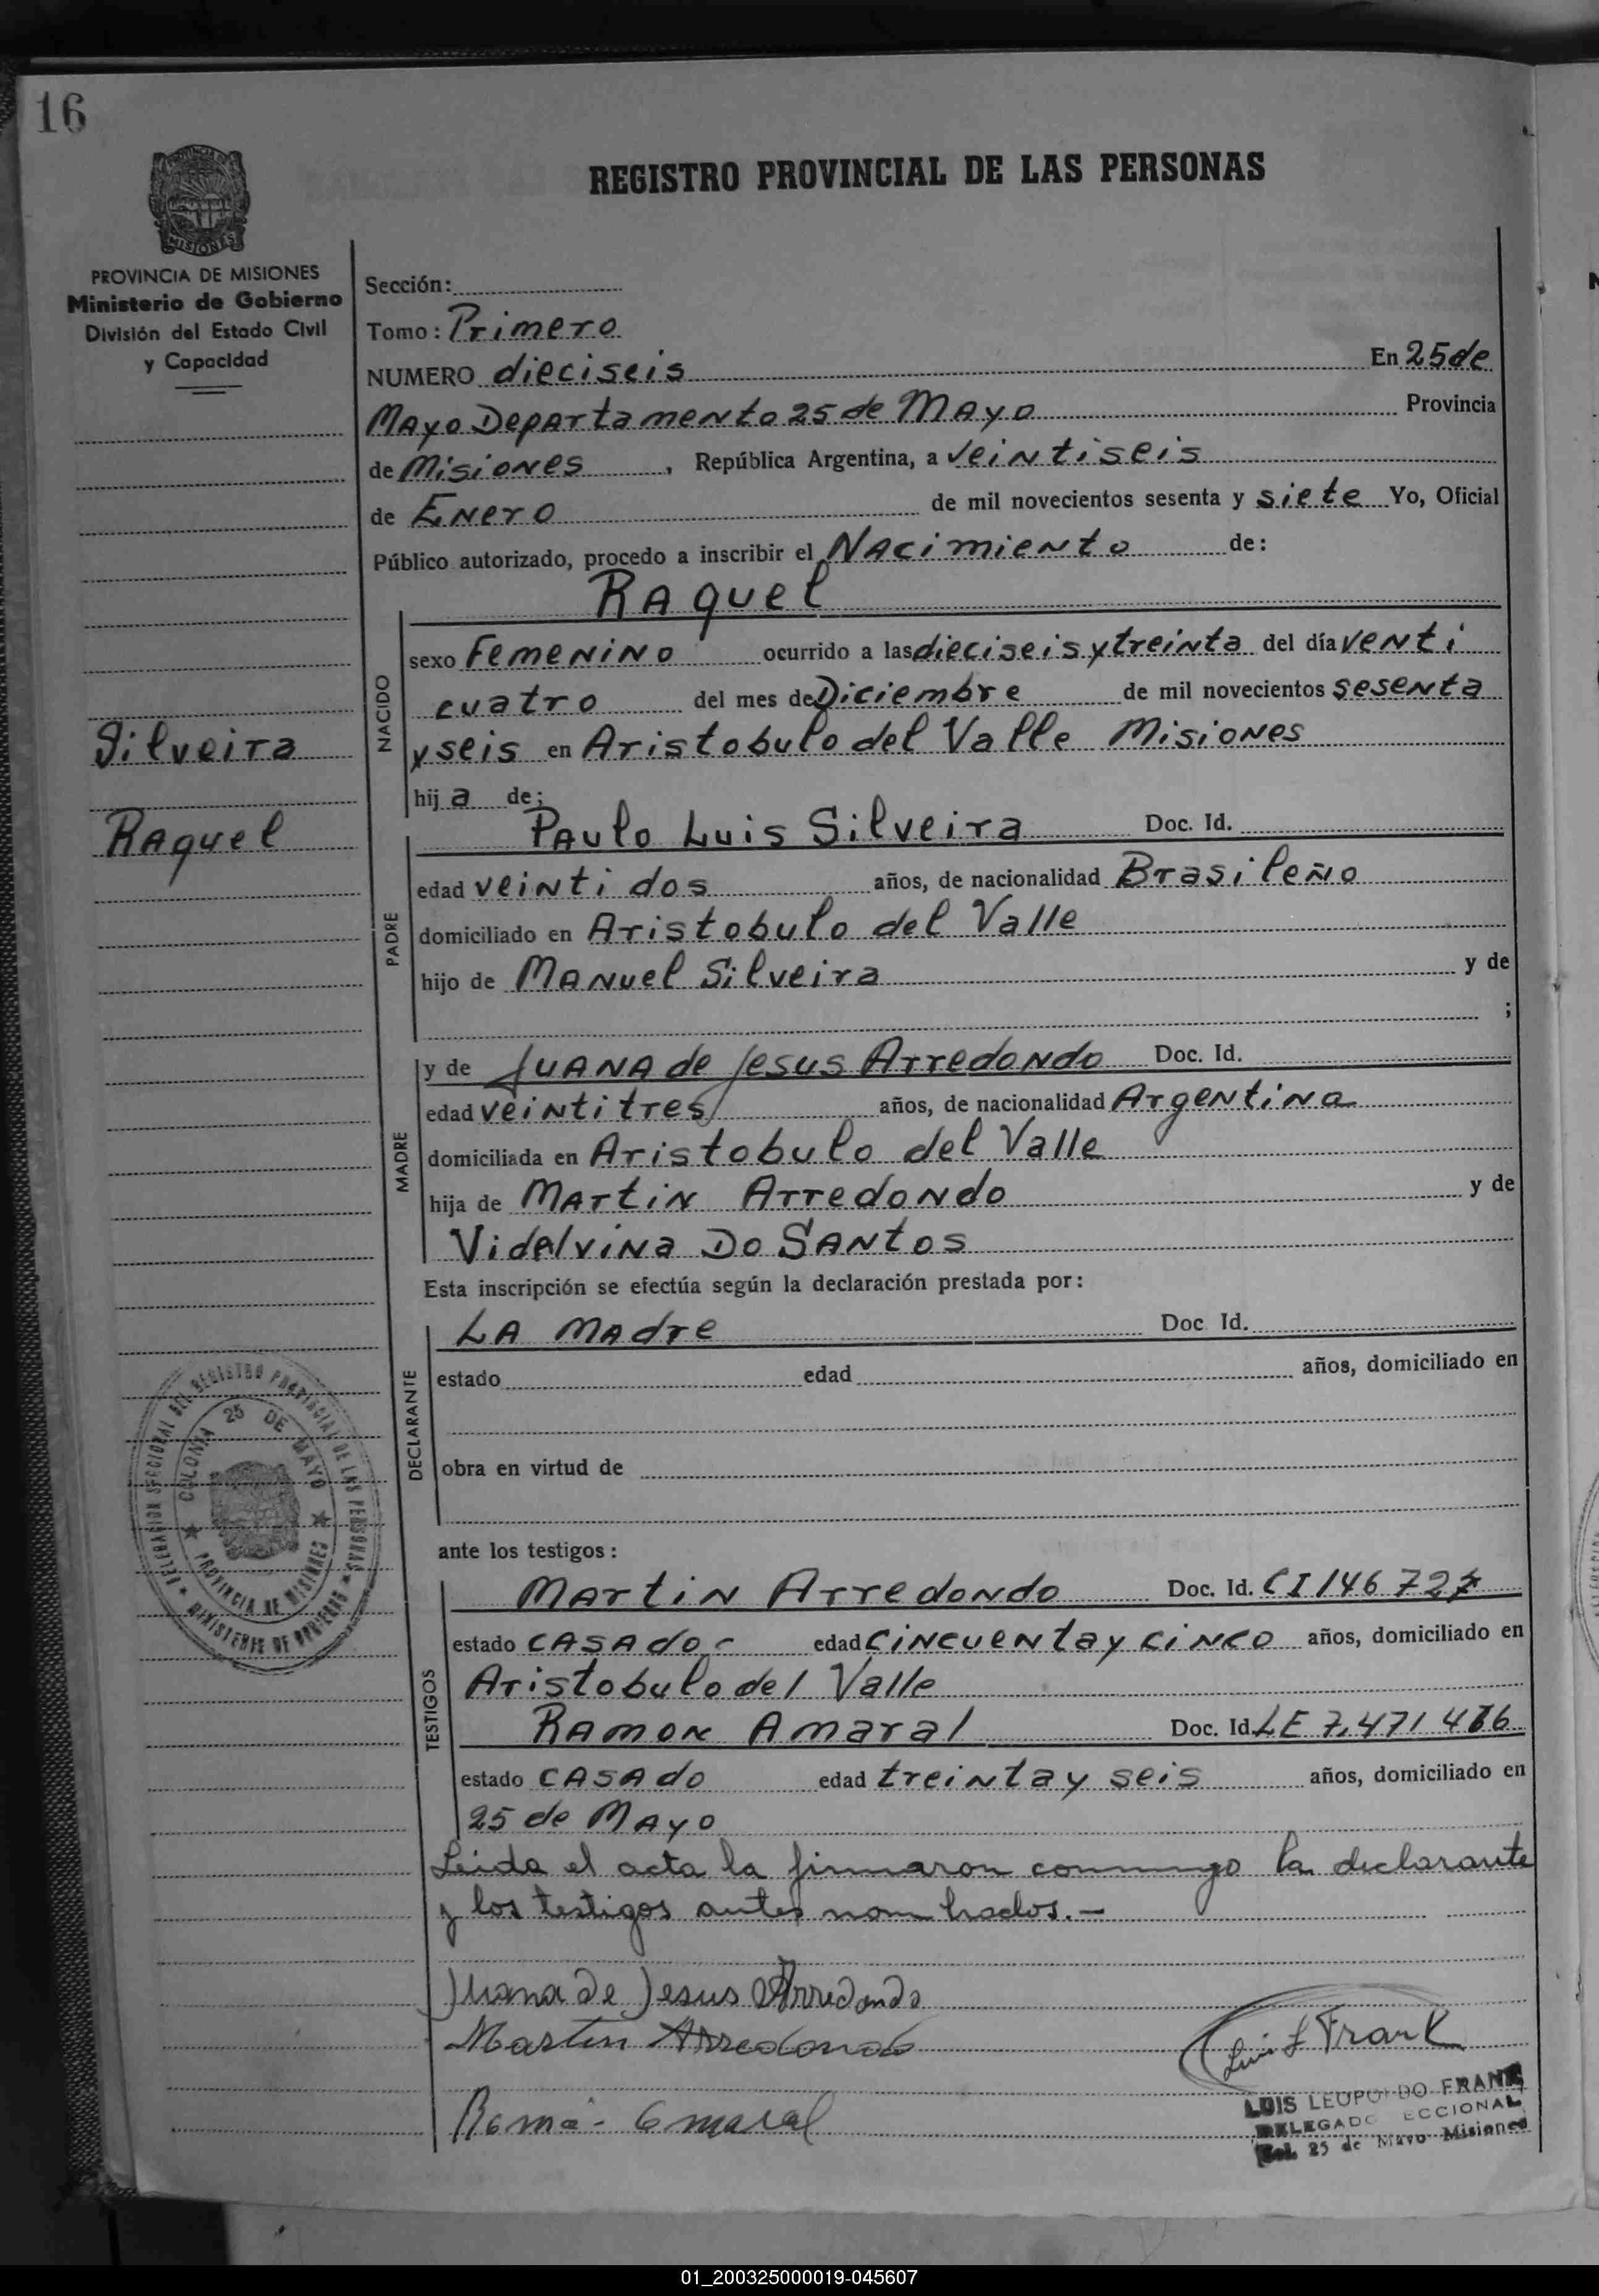 16
REGISTRO PROVINCIAL DE LAS PERSONAS
PROVINCIA DE MISIONES
Ministerio de Gobierno
División del Estado Civil
y Capacidad
Sección:
Tomo: Primero
NUMERO dieciseis En 25 de
Mayo Departamento 25 de Mayo Provincia
de Misiones, República Argentina, a veintiseis
de Enero de mil novecientos sesenta y siete Yo, Oficial
Público autorizado, procedo a inscribir el Nacimiento de:
Raquel
NACIDO
sexo Femenino ocurrido a las dieciseis y treinta del día venti
cuatro del mes de Diciembre de mil novecientos sesenta
y seis en Aristobulo del Valle Misiones
hija de:
Silveira
Raquel
PADRE
Paulo Luis Silveira Doc. Id.
edad veinti dos años, de nacionalidad Brasileño
domiciliado en Aristobulo del Valle
hijo de Manuel Silveira y de
;
MADRE
y de Juana de Jesus Arredondo Doc. Id.
edad veintitres años, de nacionalidad Argentina
domiciliada en Aristobulo del Valle
hija de Martin Arredondo y de
Vidalvina Do Santos
Esta inscripción se efectúa según la declaración prestada por:
DECLARANTE
La Madre Doc Id.
estado edad años, domiciliado en
obra en virtud de
DELEGACION SECCIONAL DEL REGISTRO PROVINCIAL DE LAS PERSONAS
COLONIA 25 DE MAYO
PROVINCIA DE MISIONES
MINISTERIO DE GOBIERNO
ante los testigos:
TESTIGOS
Martin Arredondo Doc. Id. CI 146
estado casado - edad cincuenta y cinco años, domiciliado en
Aristobulo del Valle
Ramon Amaral Doc. Id. LE 7.471
estado casado edad treinta y seis años, domiciliado en
25 de Mayo
Leida el acta la firmaron conmigo la declarante
y los testigos antes nombrados.-
Juana de Jesus Arredondo
Martin Arredondo
Luis L Frank
LUIS LEOPOLDO FRANK
DELEGADO SECCIONAL
Col. 25 de Mayo Misiones
01_200325000019-045607